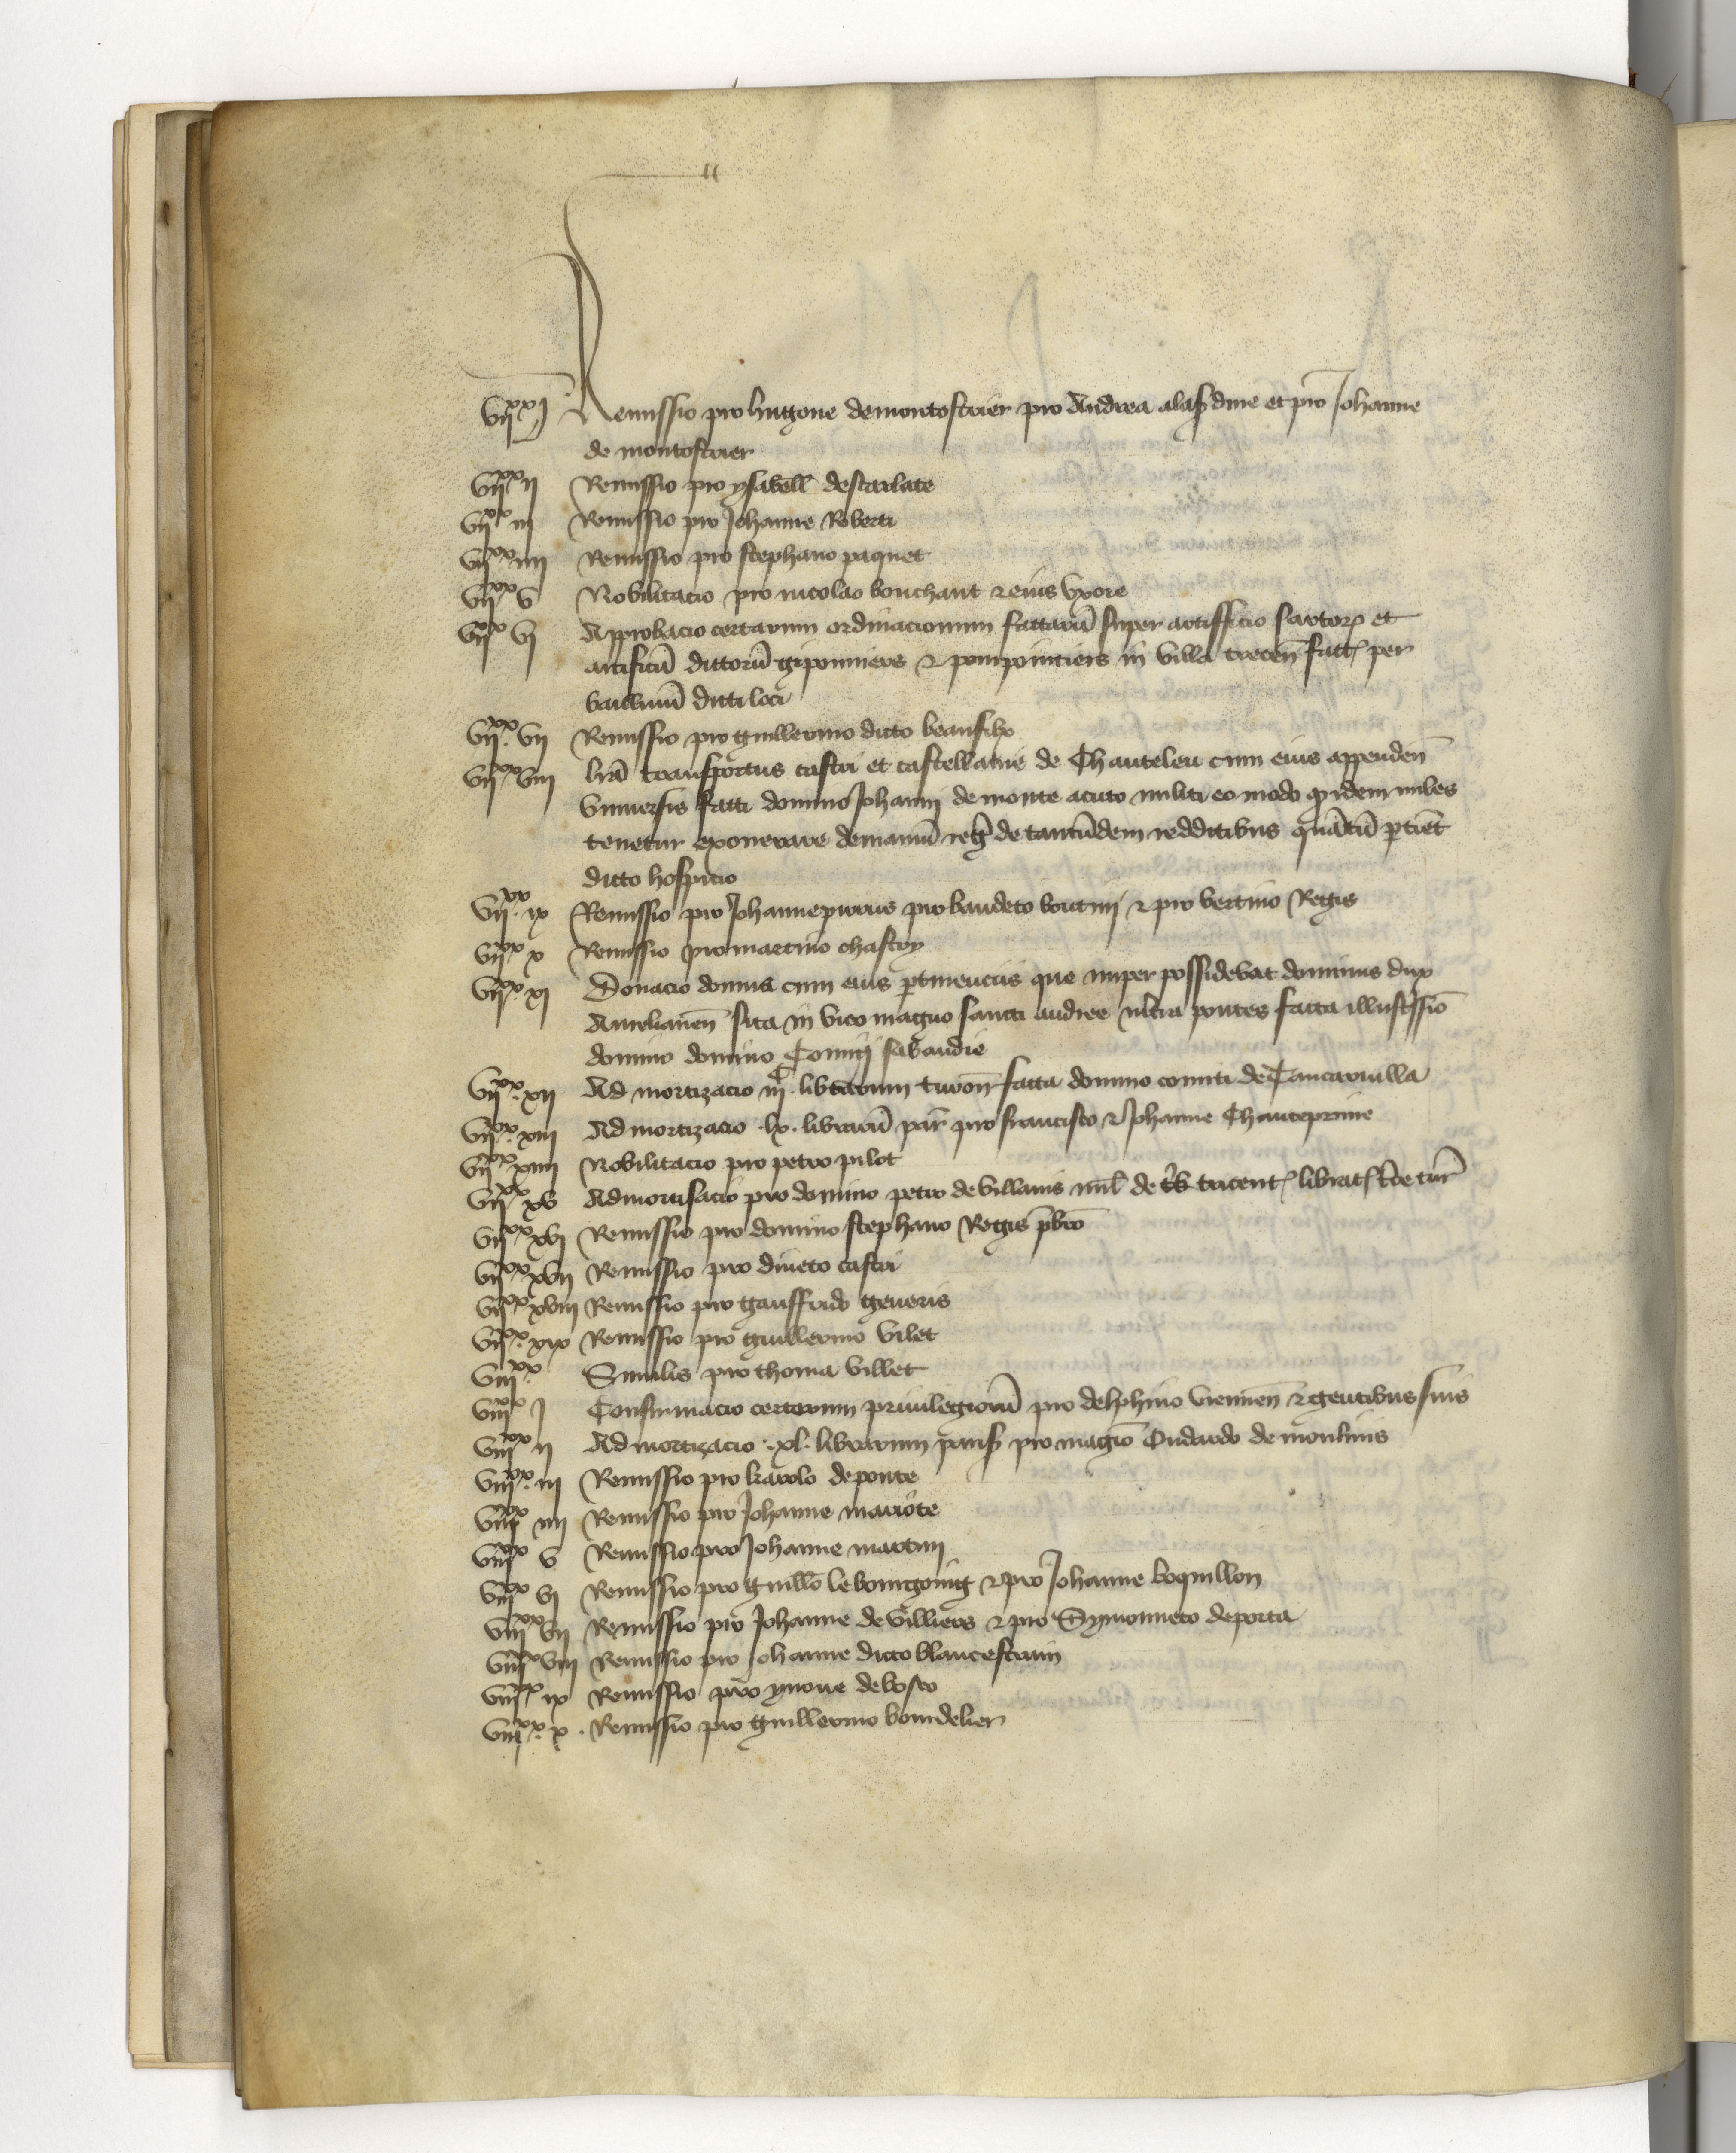 VIIˣˣ I Remissio pro hugone de montostrier pro Andrea et pro Johanne
de montostrier
VIIˣˣ II Remissio pro ysabell̄ descarlate
VIIˣˣ III Remissio pro Johanne Roberti
VIIˣˣ IIII Remissio pro stephano paquet
VIIˣˣ V Nobilitacio pro nicolao bouchant & eius vxore
VIIˣˣ VI Approbacio certarum ordinacionum factarū super artifficio sartorꝝ et
artificū dictorū giponniers & pourpointiers in villa trecen̄ fact per
baillivū dicti loci
VIIˣˣ VII Remissio pro guillermo dicto beaufilx
VIIˣˣ VIII lrā transportus castri et castellanie de Chanteleu cum eius appenden̄
vniuersis facti domino Johanni de monte acuto militi eo modo idem miles
tenetur exonerare demaniū reḡ de tantūdem redditibus quātū ꝑtiēt
dicto hospicio
VIIˣˣ IX Remissio pro Johanne pro baudeto boutin & pro bertino Regis
VIIˣˣ X Remissio pro martino chastoy
VIIˣˣ XI Donacio domus cum eius ꝑtinenciis que nuper possidebat dominus dux
Aurelianen̄ sita in vico magno sancti andree vltra pontes facta illustissīo
domino domino Comiti sabaudie
VIIˣˣ XII Ad mortizacio IIIᶜ librarum turon̄ facta domino comiti de Tancarvilla
VIIˣˣ XIII Ad mortizacio .lx. librarū par̄ pro francisco & Johanne Chanteprime
VIIˣˣ XIIII Nobilitacio pro petro pilot
VIIˣˣ XV Admortisacio pro domino petro de villanis mil̄ de tricent librat tr̄e tur̄
VIIˣˣ XVI Remissio pro domino stephano Regis pb̄ro
VIIˣˣ XVII Remissio pro castri
VIIˣˣ XVIII Remissio pro gauffrido generis
VIIˣˣ XIX Remissio pro guillermo vilet
VIIIˣˣ Similis pro thoma villet
VIIIˣˣ I Confirmacio certorum priuilegiorū pro delphino viennen̄ & gentibus suis
VIIIˣˣ II Ad mortizacio .xl. librarum paris pro magr̄o Oudardo de moulinis
VIIIˣˣ III Remissio pro karolo de ponte
VIIIˣˣ IIII Remissio pro Johanne mariote
VIIIˣˣ V Remissio pro Johanne martin
VIIIˣˣ VI Remissio pro guill̄o le bourgoing & pro Johanne boquillon
VIIIˣˣ VII Remissio pro Johanne de villiers & pro Symonneto de porta
VIIIˣˣ VIII Remissio pro Johanne dicto blancestrain
VIIIˣˣ IX Remissio pro yuone de bosco
VIIIˣˣ X . Remissio pro guillermo bourdelier